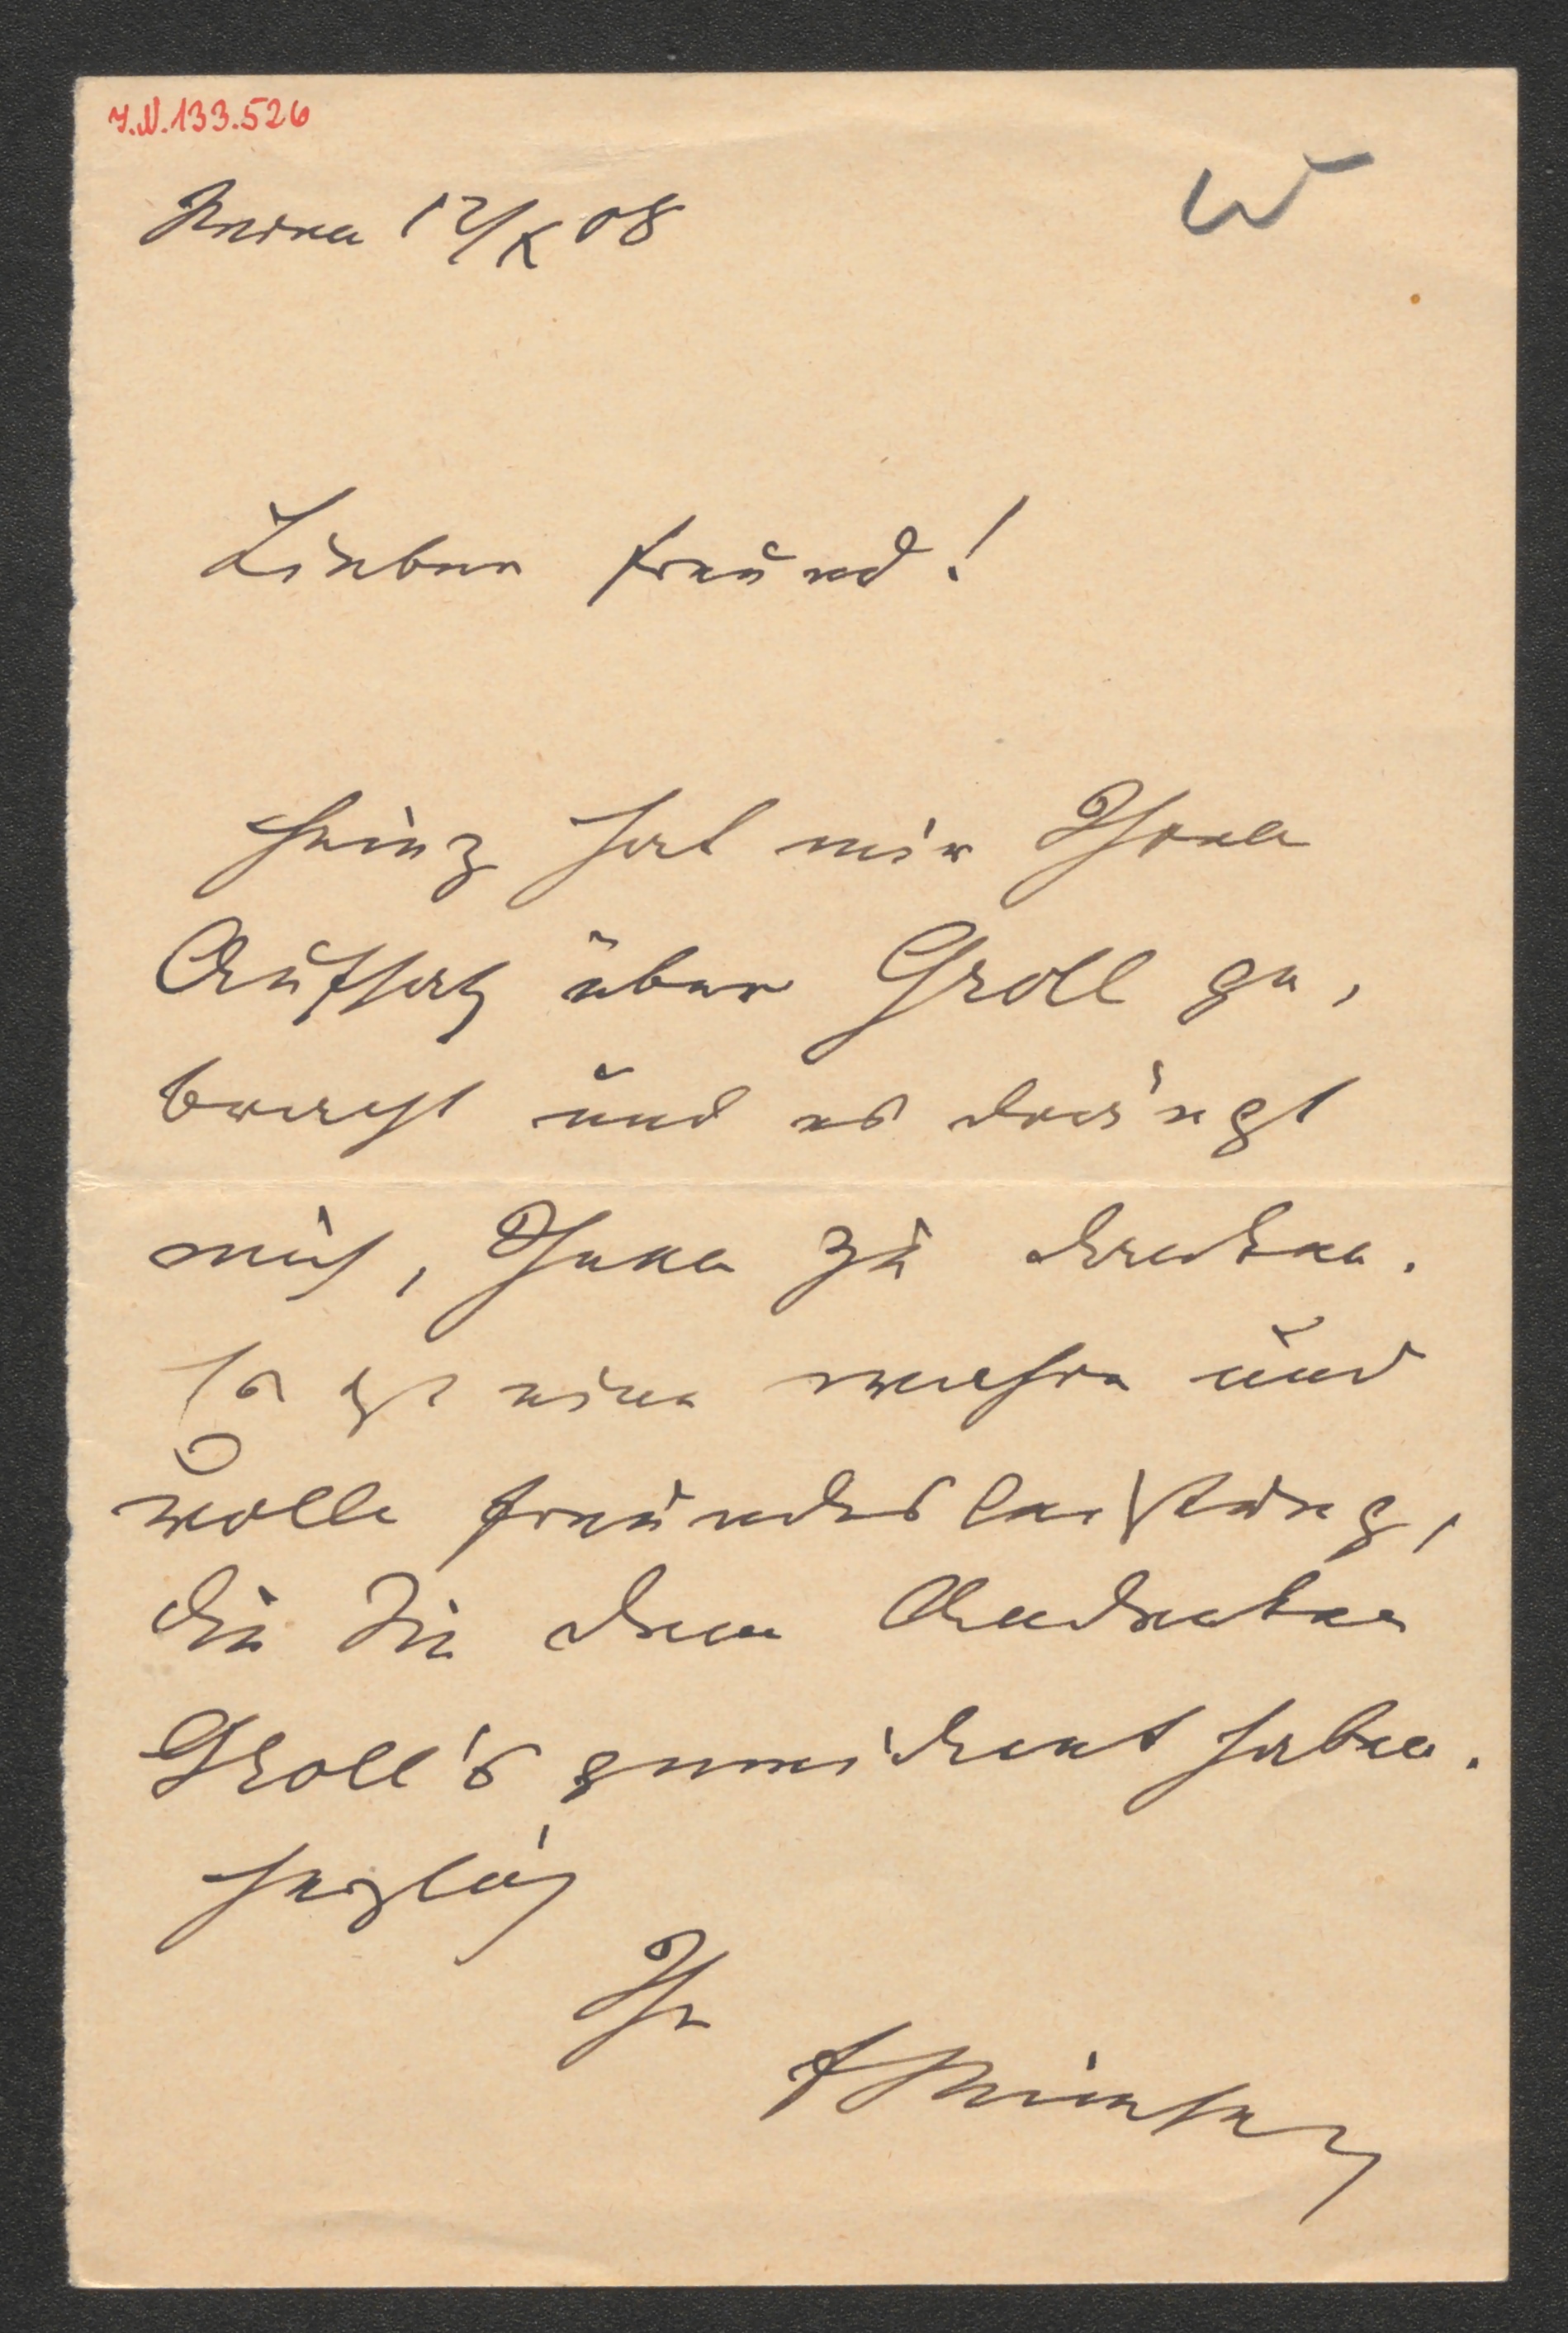 I.N. 133.526
W
Wien 12/X 08
Lieber Freund!
Heinz hat mir Ihren
Aufsatz über Groll ge-
bracht und es drängt
mich, Ihnen zu danken.
Es ist eine wahre und
volle Freundesleistung,
die Sie dem Andenken
Groll's gewidmet haben.
Herzlich
Ihr